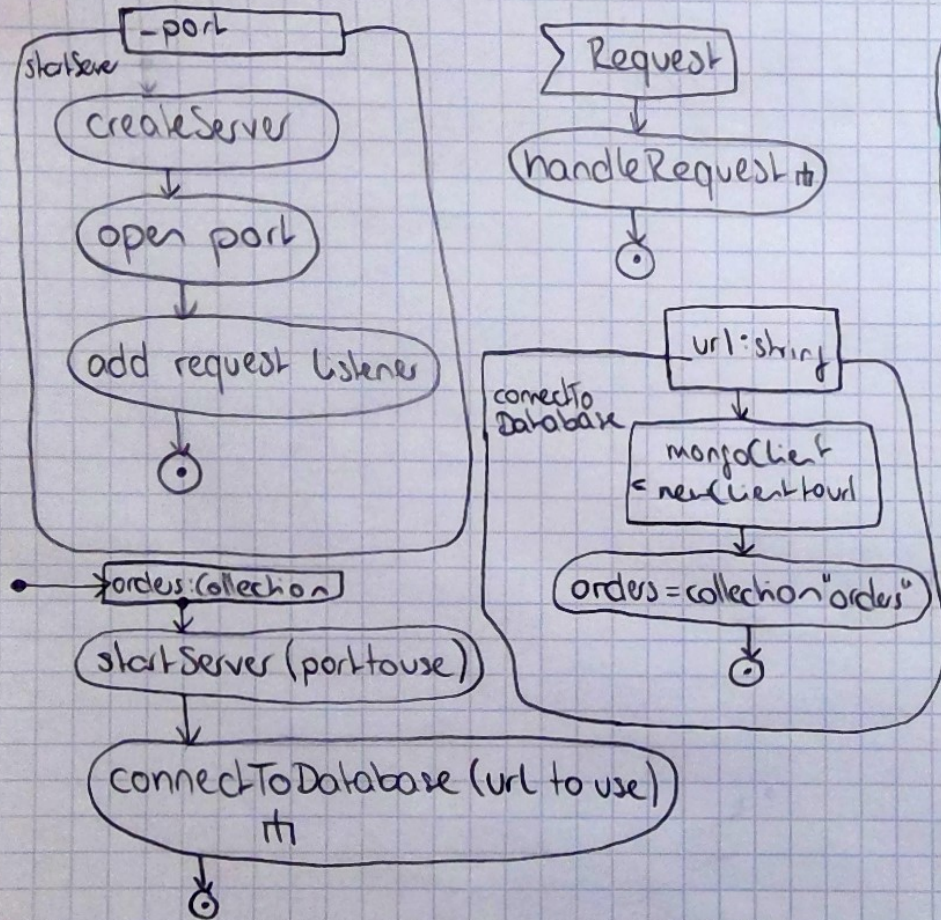 _port
startServe
createServer
open port
add request listener
Request
handleRequest
url:string
connectTo
Database
mongoClient
= newClient to url
orders=collection"orders"
orders:Collection
startServer (port to use)
connectToDatabase (url to use)